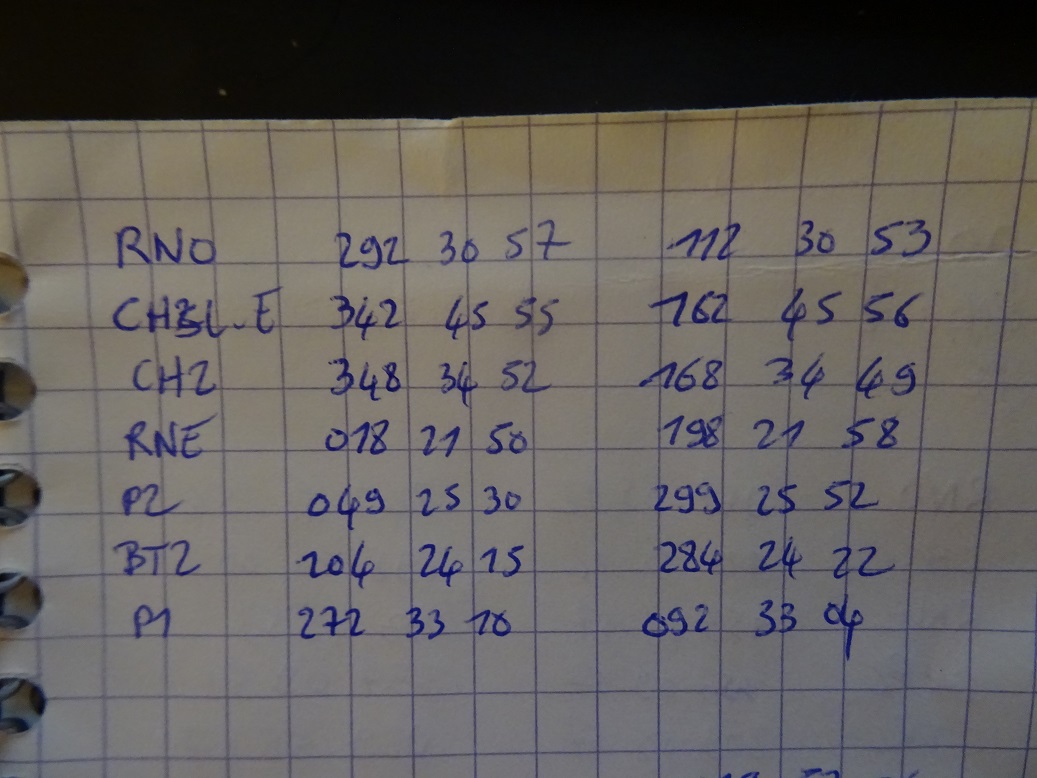 RNO 292 30 57 112 30 53
CH3L-E 342 45 55 162 45 56
CH2 348 34 52 168 34 49
RNE 018 21 50 198 21 58
P2 049 25 30 299 25 52
BT2 104 24 15 284 24 22
P1 272 33 10 092 33 04